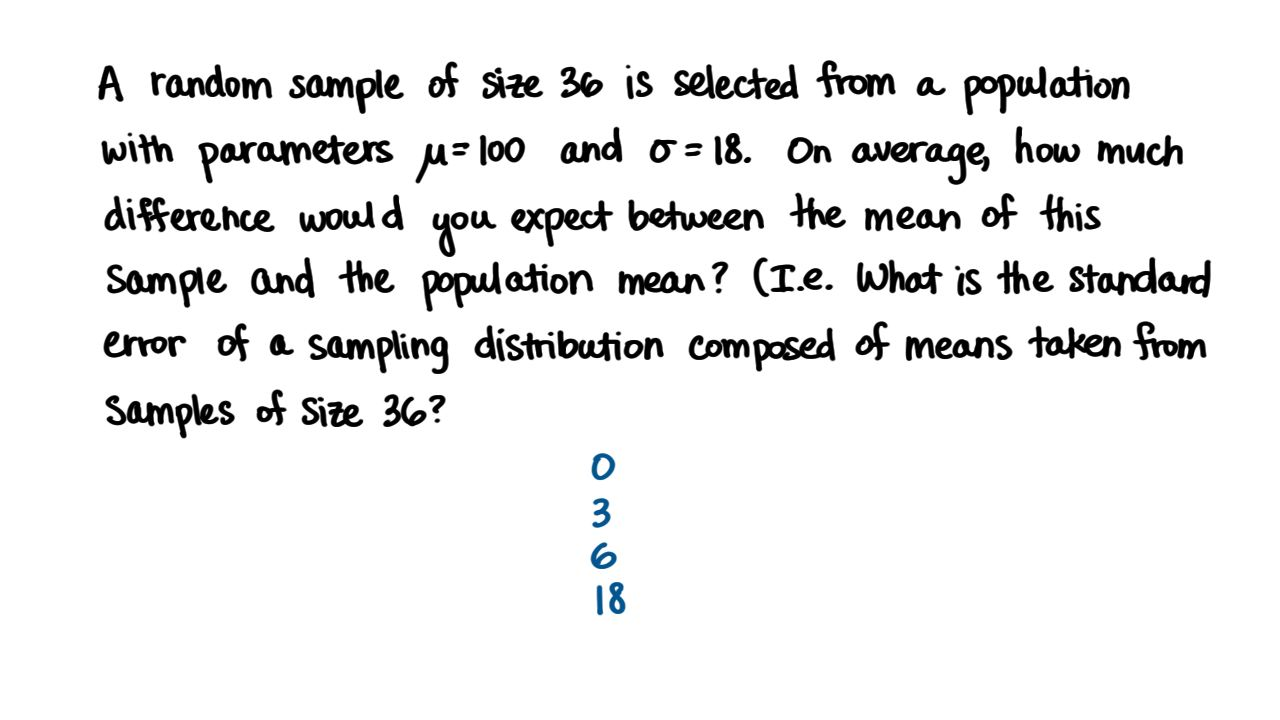 A random sample of size 36 is selected from a population
with parameters μ=100 and σ=18. On average, how much
difference would you expect between the mean of this
sample and the population mean? (I.e. What is the standard
error of a sampling distribution composed of means taken from
samples of size 36?
0
3
6
18